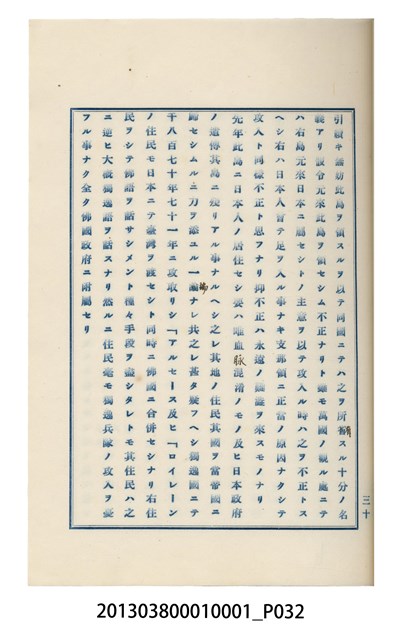 引續キ談訪此島ヲ領スルヲ以テ同國ニテハ之ヲ所有スル十分ノ名
義アリ設令元來此島ヲ領セシム不正ナリト雖モ萬國ノ視ル處ニテ
ハ右島元來日本ニ屬セシトノ主意ヲ以テ攻入ル時ハ之ヲ不正トス
ヘシ右ハ日本人曾テ足ヲ入ル事ナキ支那領ニ正當ノ原因ナクシテ
攻入ト同樣不正ト思フナリ抑不正ハ永遠ノ ヲ來スモノナリ
先年此島ニ日本人ノ居住セシ姿ハ唯血脉混淆ノモノ及ヒ日本政府
ノ遺傳其島ニ殘リアル事ナルヘシ之レ其地ノ住民其國ヲ當帝國ニ
歸セシムルニ刀ヲ添ユル一端ナレ共之レ甚タ疑フヘシ獨逸國ニテ
千八百七十年七十一年ニ攻取リシ「アルセース及ヒ「ロイレーン
ノ住民モ日本ニテ臺灣ヲ談セシト同時ニ佛國ニ合併セシナリ右住
民ヲシテ佛語ヲ話サシメント種々手段ヲ盡シタレトモ其住民ハ之
ニ逆ヒ大概獨逸語ヲ話スナリ然ルニ住民毫モ獨逸兵隊ノ攻入ヲ憂
フル事ナク全タ佛國政府ニ附屬セリ
三十
201303800010001_P032